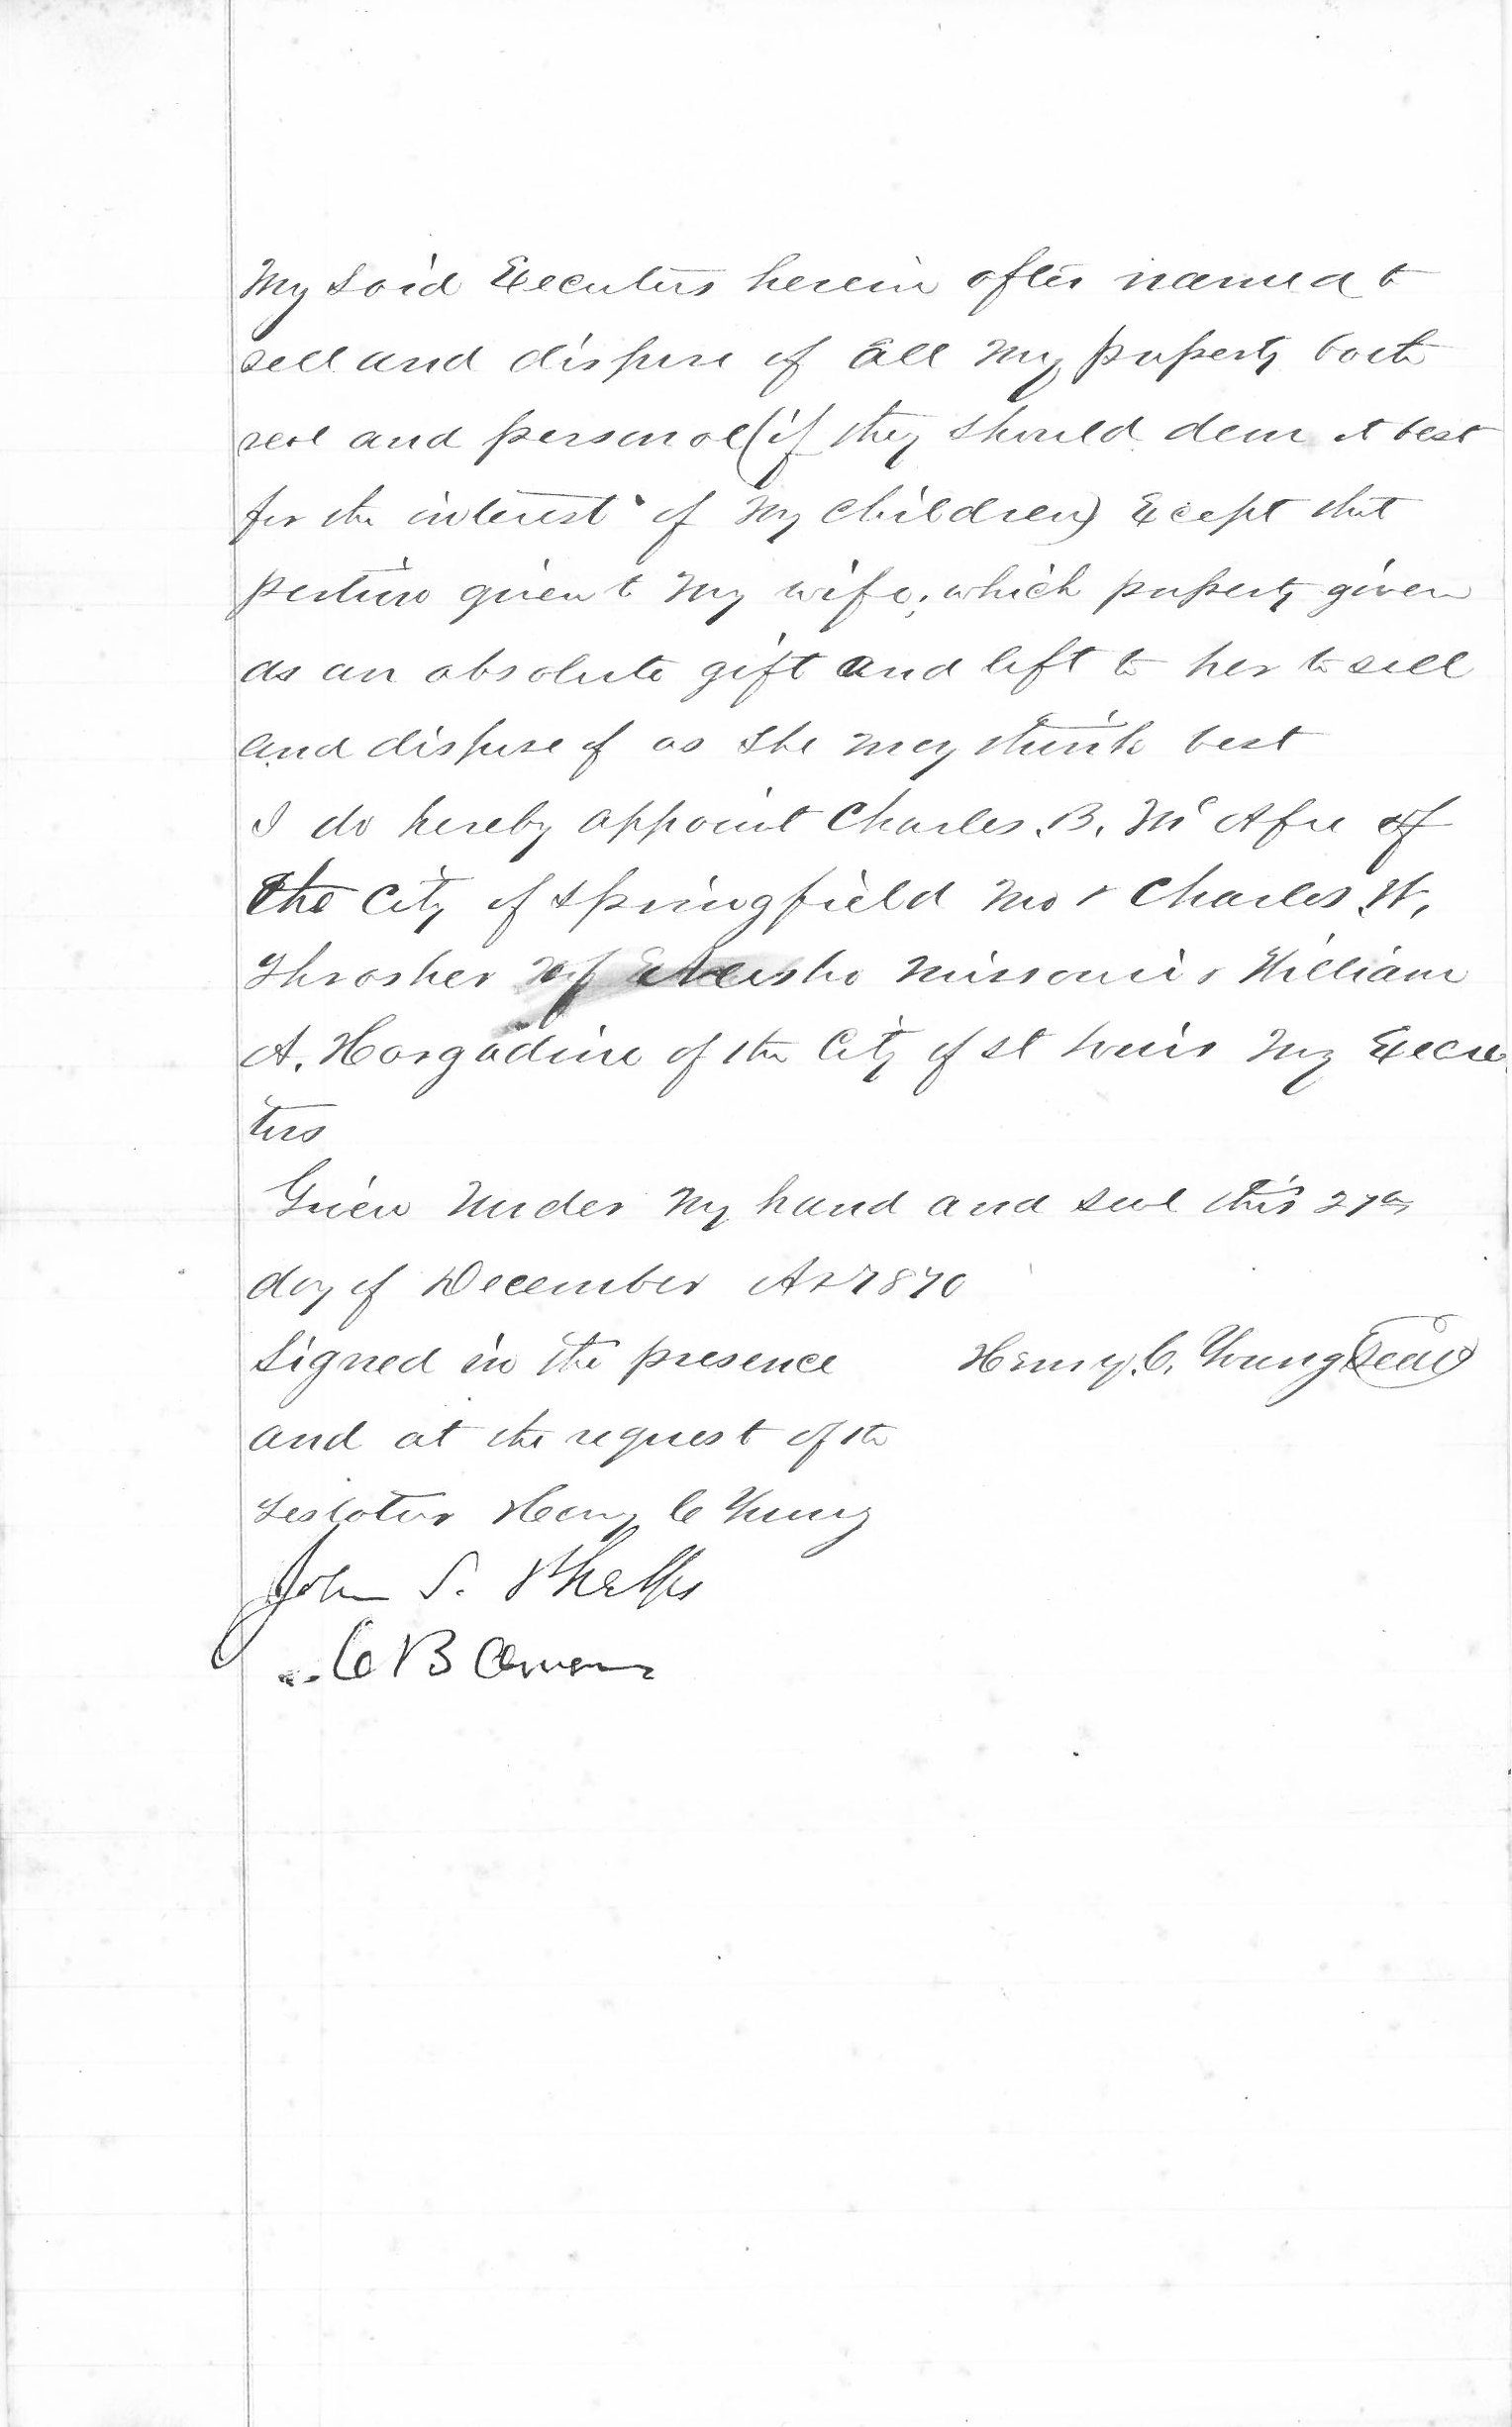 My Said Executors herein after named to
sell and dispose of All my property both
real and personal (if they should deem it best
for the interest of my children) Except that
portion given to My wife, which property given
as an absolute gift and left to her to sell
and dispose of as She may think best
I do hereby appoint Charles. B. McAfee of
the City of Springfield Mo & Charles W.
Thrasher of Neosho Missouri & William
A. Hargadine of the City of St Louis My Execu
tors
Given Under My hand and seal this 27th
day of December AD 1870
Signed in the presence Henry. C. Young (Seal)
and at the request of the
Testator Henry C Young
John S. Phelps
C B Owens